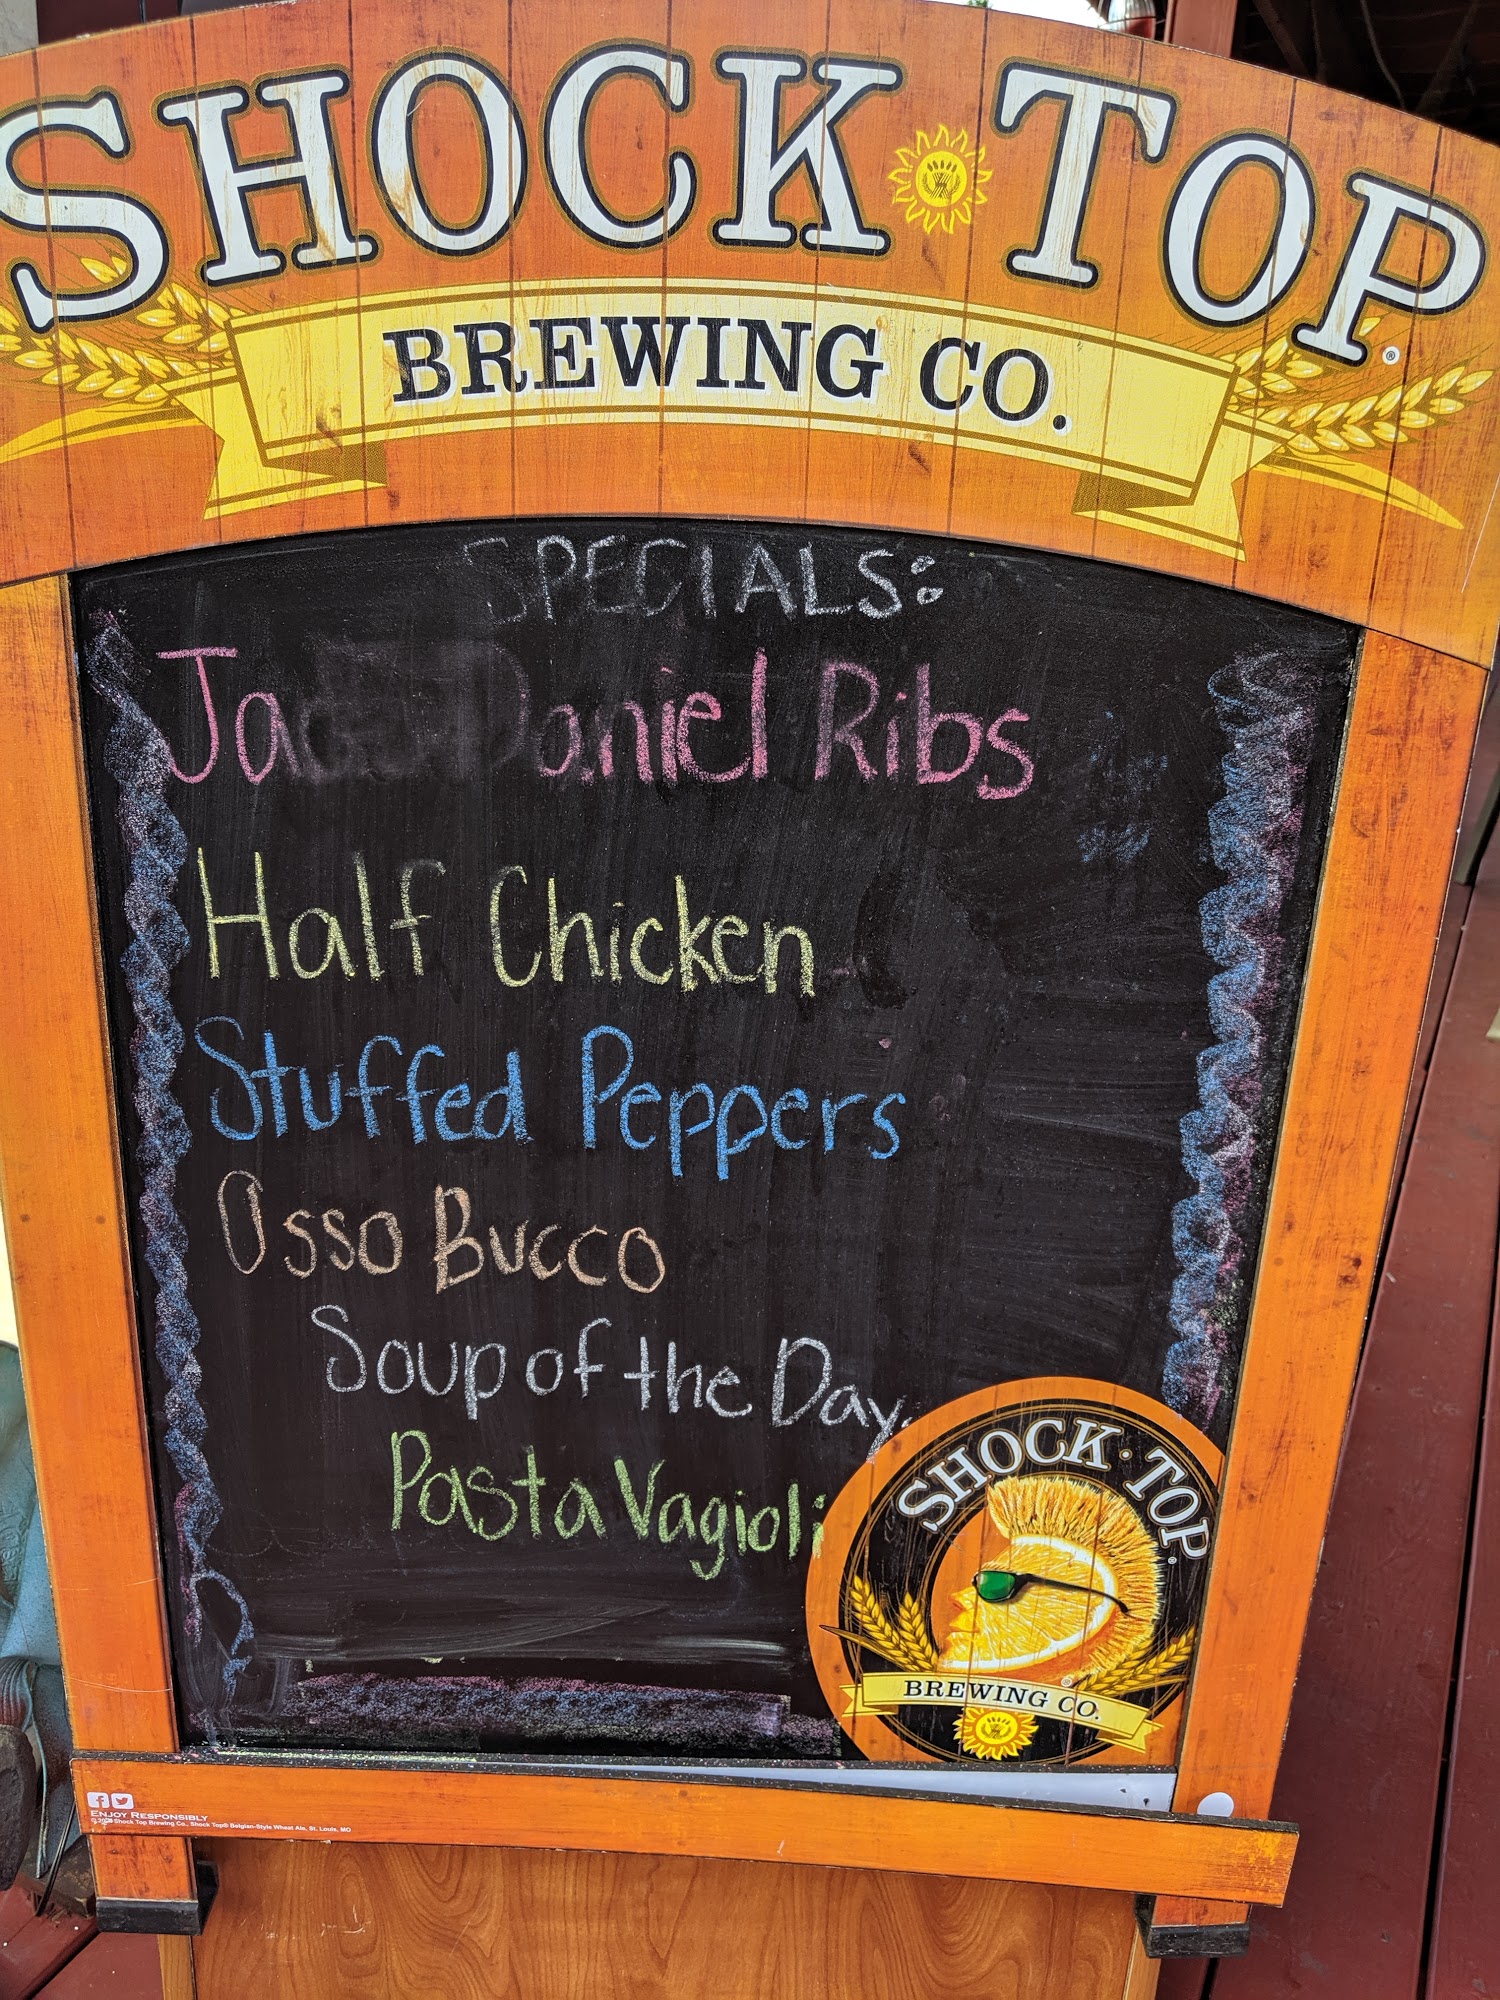 SHOCK TOP
BREWING CO.
SPECIALS:
Jack Daniel Ribs
Half Chicken
Stuffed Peppers
Osso Bucco
Soup of the Day
Pasta Vagioli
SHOCK·TOP
BREWING CO.
ENJOY RESPONSIBLY
Shock Top Brewing Co., Shock Top® Belgian-Style Wheat Ale, St. Louis, MO